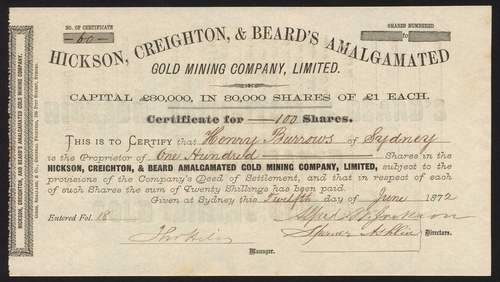 NO. OF CERTIFICATE
60
SHARES NUMBERED
to
HICKSON, CREIGHTON, & BEARD'S AMALGAMATED
GOLD MINING COMPANY, LIMITED.
CAPITAL £30,000, IN 30,000 SHARES OF £1 EACH.
Certificate for 100 Shares.
THIS IS TO CERTIFY that Henry Burrows of Sydney
is the Proprietor of One Hundred Shares in the
HICKSON, CREIGHTON, & BEARD AMALGAMATED GOLD MINING COMPANY, LIMITED, subject to the
provisions of the Company's Deed of Settlement, and that in respect of each
of such Shares the sum of Twenty Shillings has been paid.
Given at Sydney this Twelfth day of June 1872
Entered Fol. 18
Directors.
Manager.
HICKSON, CREIGHTON, AND BEARD'S AMALGAMATED GOLD MINING COMPANY